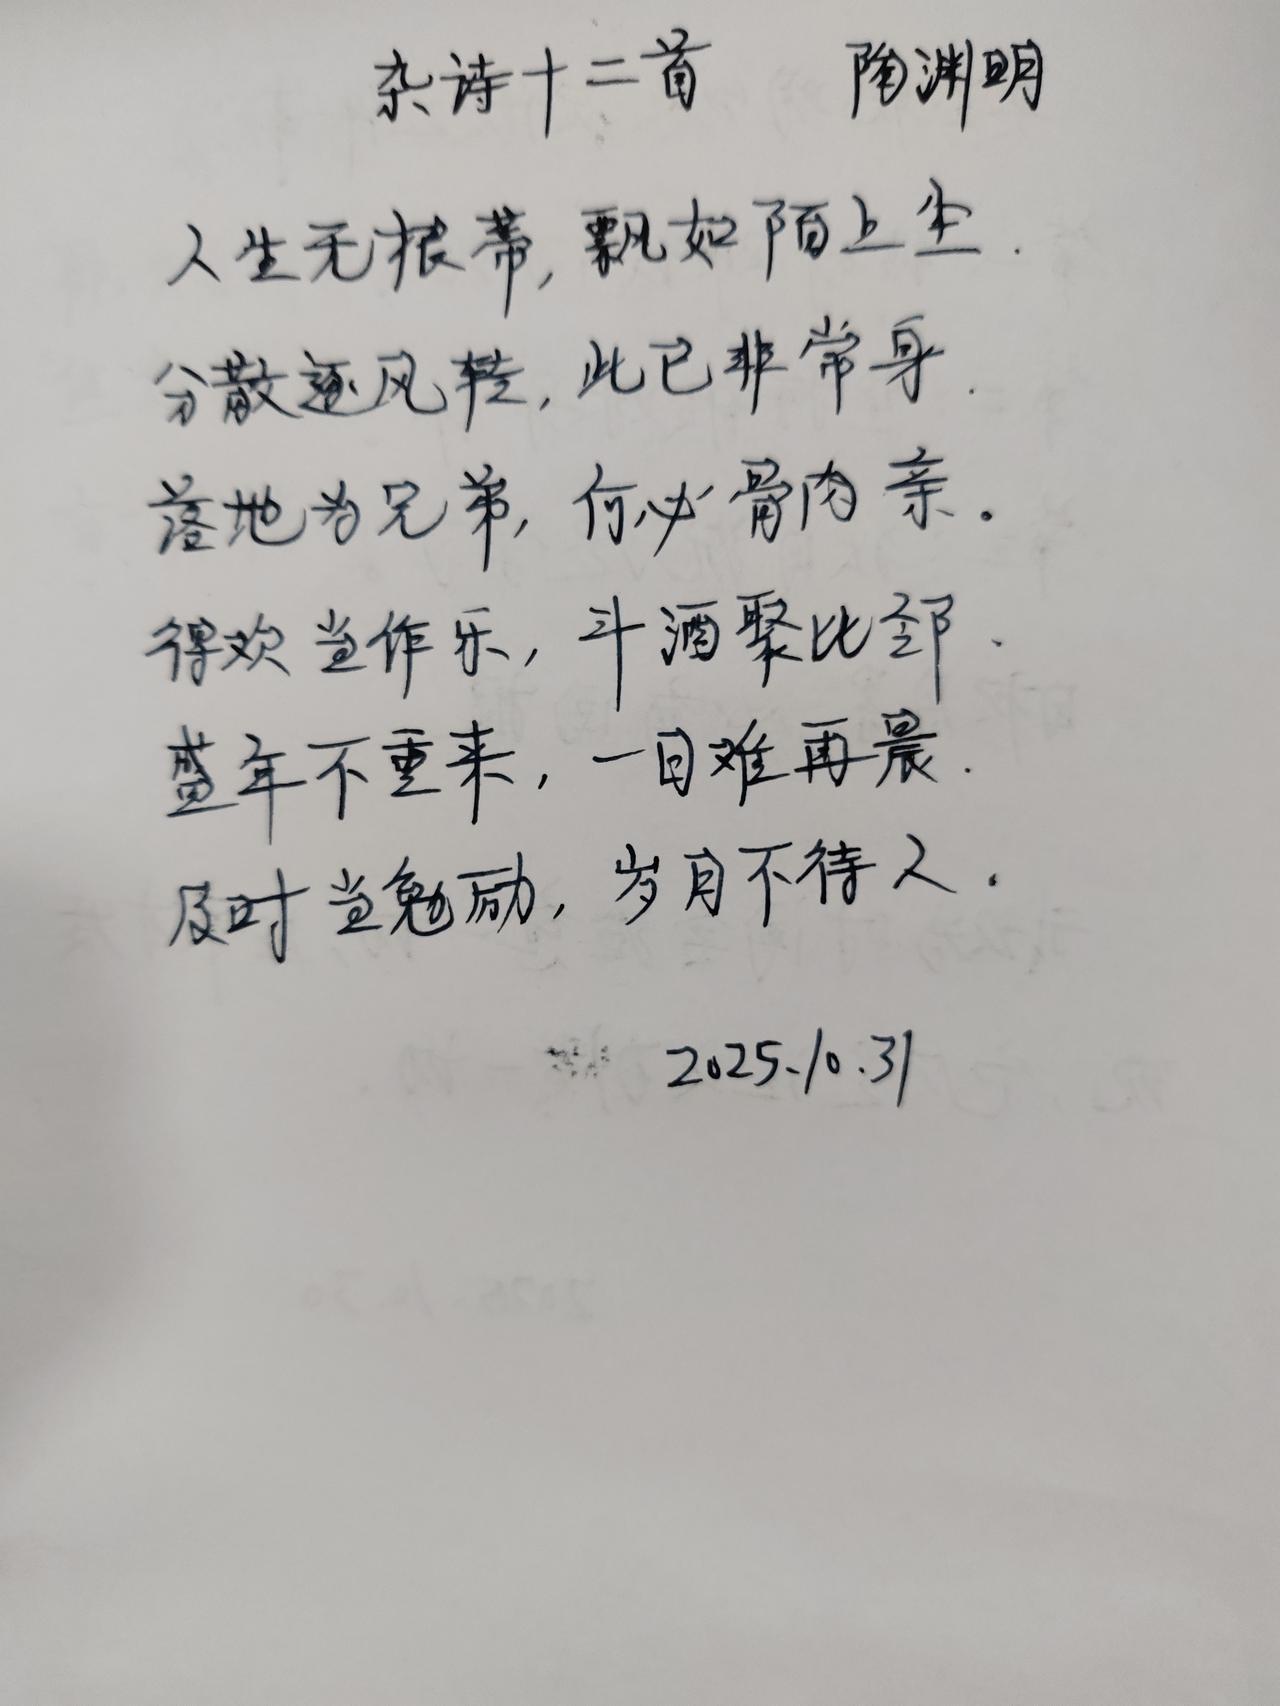 杂诗十二首 陶渊明
人生无根蒂,飘如陌上尘.
分散逐风转,此已非常身.
落地为兄弟,何必骨肉亲.
得欢当作乐,斗酒聚比邻.
盛年不重来,一日难再晨.
及时当勉励,岁月不待人.
2025.10.31